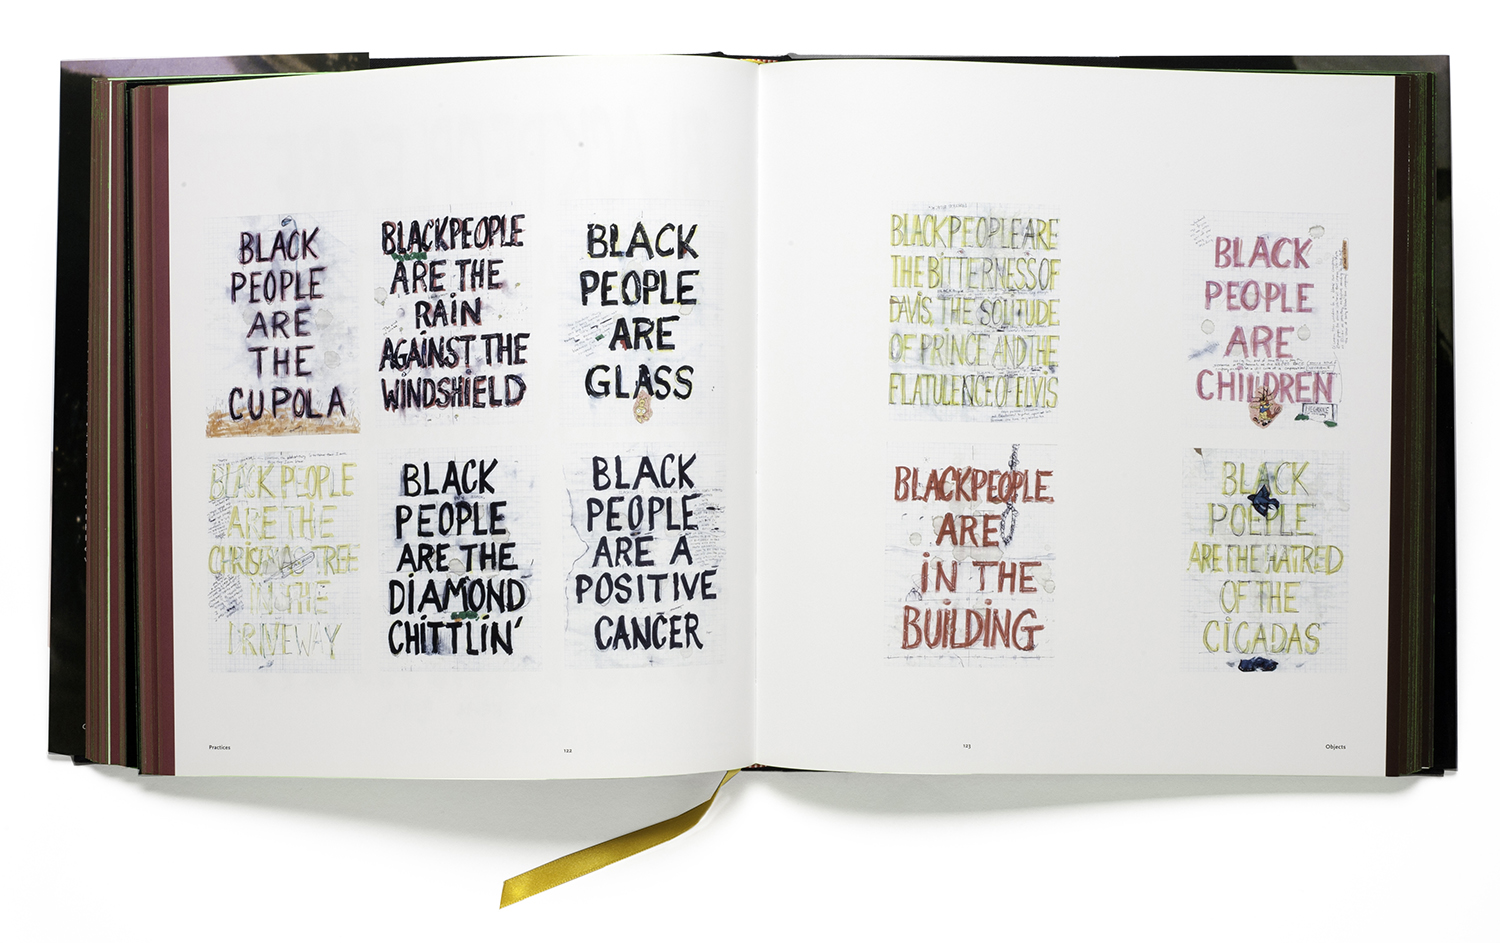 BLACK
PEOPLE
ARE
THE
CUPOLA
BLACKPEOPLE
ARE THE
RAIN
AGAINST THE
WINDSHIELD
BLACK
PEOPLE
ARE
GLASS
BLACK PEOPLE
ARE THE
CHRISTMAS TREE
IN THE
DRIVEWAY
BLACK
PEOPLE
ARE THE
DIAMOND
CHITTLIN'
BLACK
PEOPLE
ARE A
POSITIVE
CANCER
Practices
122
BLACKPEOPLEARE
THE BITTERNESS OF
DAVIS, THE SOLITUDE
OF PRINCE AND THE
FLATULENCE OF ELVIS
BLACK
PEOPLE
ARE
CHILDREN
BLACKPEOPLE
ARE
IN THE
BUILDING
BLACK
POEPLE
ARE THE HATRED
OF THE
CICADAS
123
Objects